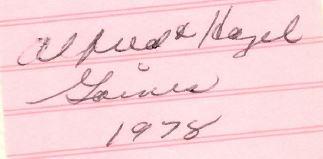 Alfred & Hazel
Gaines
1978